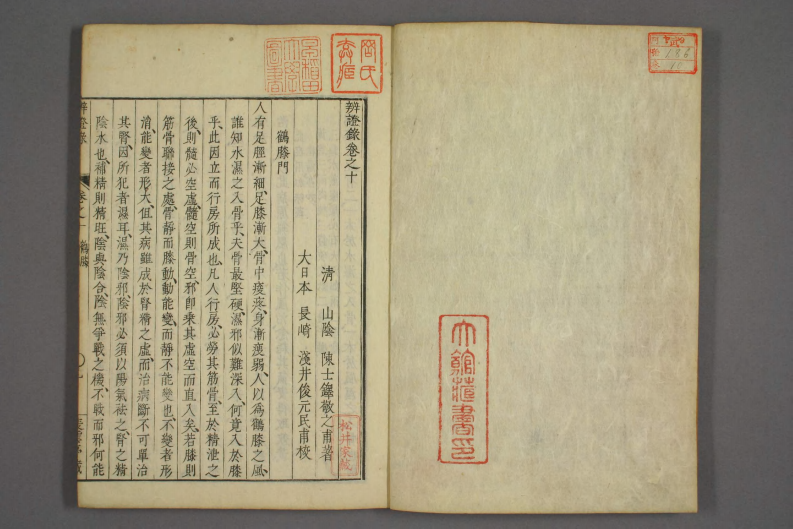 辨證錄卷之十
清 山陰 陳士鐸敬之甫著
大日本 長崎 淺井俊元民甫校
鶴膝門
人有足脛漸細足膝漸大骨中痠疼身漸瘦弱人以爲鶴膝之風
誰知水濕之入骨乎夫骨最堅硬濕邪似難深入何竟入於膝
乎此因立而行房所成也凡人行房必勞其筋骨至於精泄之
後則髓必空虛髓空則骨空邪即乘其虛空而直入矣若膝則
筋骨聯接之處骨靜而膝動動能變而靜不能變也不變者形
消能變者形大但其病雖成於腎精之虛而治病斷不可單治
其腎因所犯者濕耳濕乃陰邪陰邪必須以陽氣祛之腎之精
陰水也補精則精旺陰與陰合陰無爭戰之機不戰而邪何能
辨證錄
卷之十
鶴膝
松井家藏